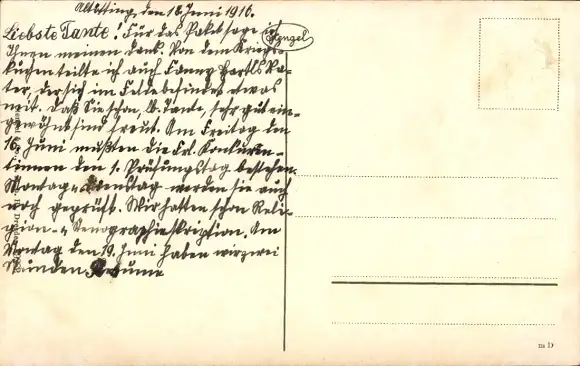 Altötting, den 18. Juni 1916.
Liebste Tante! Für das Paket sage ich
Ihnen meinen Dank. Von dem Kriegs-
kuchen teilte ich auch Fanny Hartls Va-
ter, der sich im Felde befindet etwas
mit. Daß Sie schon, lb. Tante, sehr gut ein-
gewöhnt sind freut. Am Freitag den
16. Juni mußten die Frl. Konkurren-
tinnen den 1. Prüfungstag bestehen.
Montag u. Dienstag werden sie auch
noch geprüft. Wir hatten schon Reli-
gion- u. Stenographieskription. Am
Montag den 19. Juni haben wir zwei
Stunden
m D